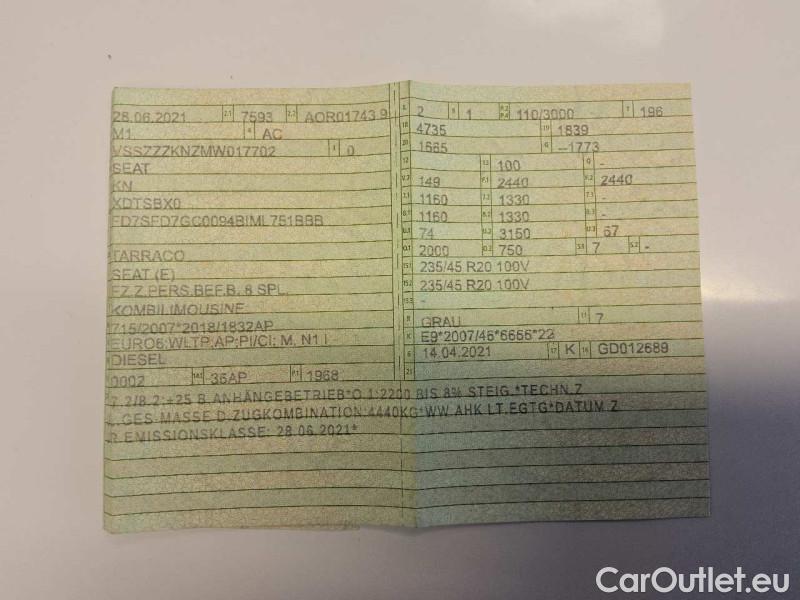 28.06.2021 2.1 7593 2.2 AOR01743 9
M1 4 AC
VSSZZZKNZMW017702 3 0
SEAT
KN
XDTSBX0
FD7SFD7GC0094BIML751BBB
TARRACO
SEAT (E)
FZ.Z.PERS.BEF.B. 8 SPL.
KOMBILIMOUSINE
715/2007*2018/1832AP
EURO6;WLTP;AP;PI/CI; M, N1 I
DIESEL
0002 14.1 36AP P.1 1968
L 2 9 1 P.2 P.4 110/3000 T 196
18 4735 19 1839
20 1665 G —1773
12 13 100 Q -
V.7 149 F.1 2440 F.2 2440
7.1 1160 7.2 1330 7.3 -
8.1 1160 8.2 1330 8.3 -
U.1 74 U.2 3150 U.3 67
O.1 2000 O.2 750 S.1 7 S.2 -
15.1 235/45 R20 100V
15.2 235/45 R20 100V
15.3 -
R GRAU 11 7
K E9*2007/46*6666*22
6 14.04.2021 17 K 16 GD012689
21
7.2/8.2:+25 B.ANHÄNGEBETRIEB*O.1:2200 BIS 8% STEIG.*TECHN.Z
L.GES.MASSE D.ZUGKOMBINATION:4440KG*WW.AHK LT.EGTG*DATUM Z
R.EMISSIONSKLASSE: 28.06.2021*
CarOutlet.eu